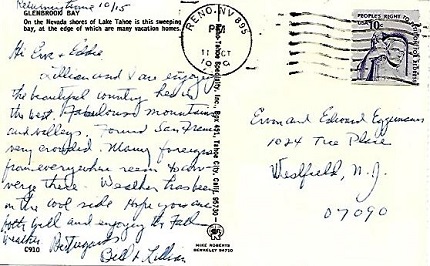 Returning home 10/15
GLENBROOK BAY
On the Nevada shores of Lake Tahoe is this sweeping
bay, at the edge of which are many vacation homes.
Hi Eve + Eddie
Lillian and I are enjoying
the beautiful country having
the best. Fabulous mountains
and valleys. Found San Fran
very crowded. Many foreigners
from everywhere seem to
there. Weather has been
on the cool side Hope you are
both well and enjoying the Fall
weather Best regards
C910
Bill + Lillian
Tahoe Specialty, Inc., Box 451, Tahoe City, Calif. 95730
MIKE ROBERTS
BERKELEY 94710
RENO, NV 895
PM
11 OCT
PEOPLE'S RIGHT TO
USA 10c
and Edward
1024 Tice Place
Westfield, N.J.
07090